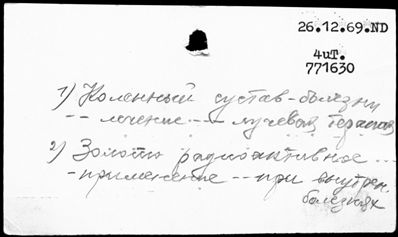 26.12.69.ND
4иТ.
771630
1) Коленный сустав-болезни
-- лечение --- лучевая терапия
2) Золото радиоактивное ...
- применение -- при внутрен.
болезнях